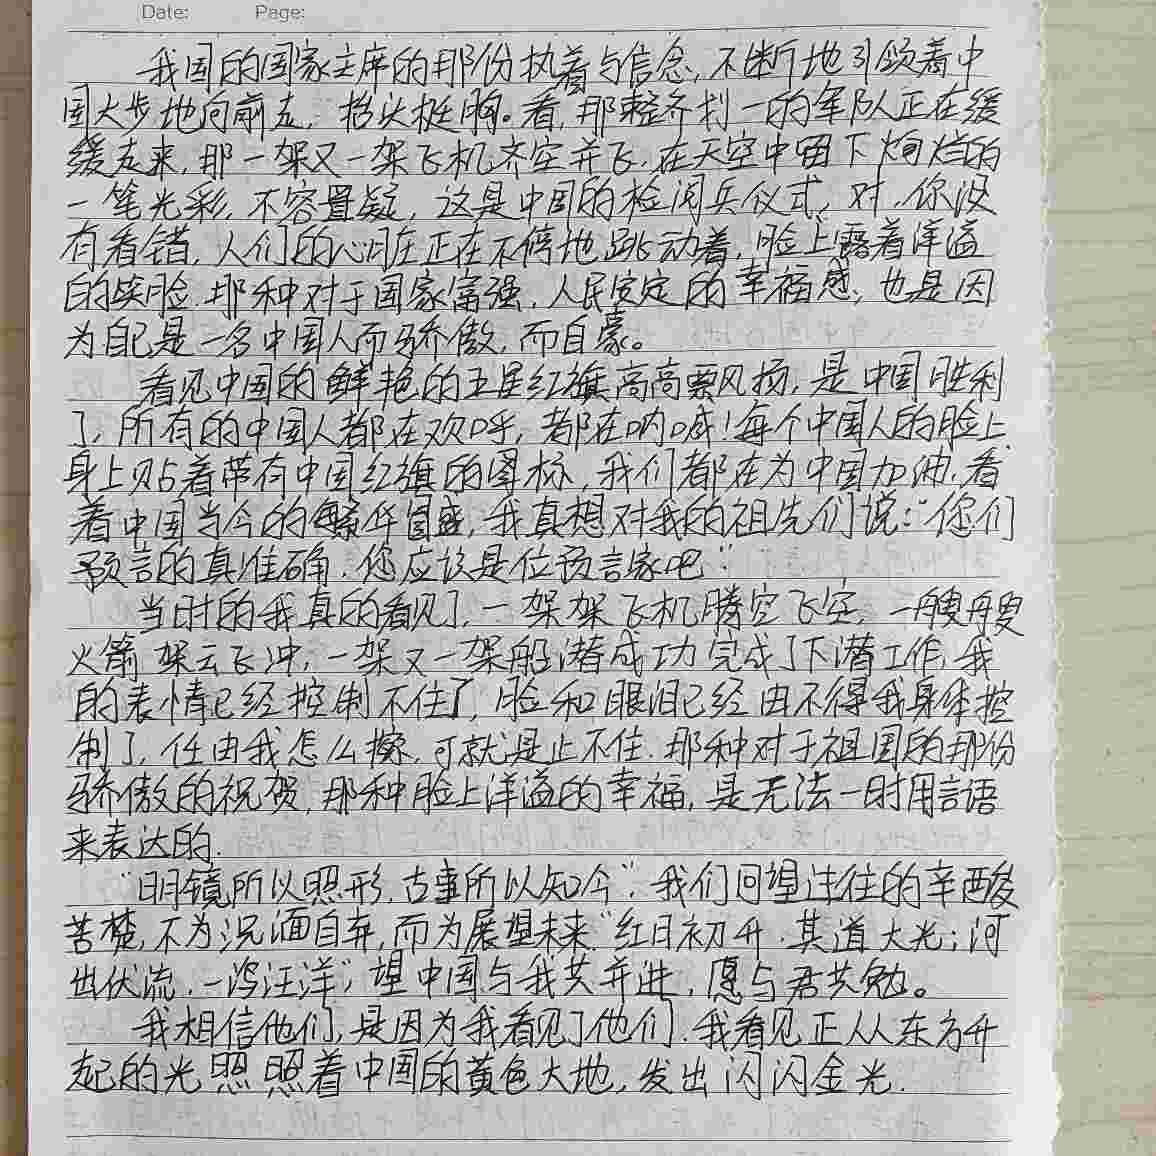 Date: Page:
我国的国家主席的那份执着与信念,不断地引领着中
国大步地向前走,抬头挺胸。看,那整齐划一的军队正在缓
缓走来,那一架又一架飞机齐空并飞,在天空中留下绚烂的
一笔光彩,不容置疑,这是中国的检阅兵仪式,对,你没
有看错,人们的心脏正在不停地跳动着,脸上露着洋溢
的笑脸,那种对于国家富强,人民安定的幸福感,也是因
为自己是一名中国人而骄傲,而自豪。
看见中国的鲜艳的五星红旗高高飘扬,是中国胜利
了,所有的中国人都在欢呼,都在呐喊!每个中国人的脸上,
身上贴着带有中国红旗的图标,我们都在为中国加油,看
着中国当今的繁华昌盛,我真想对我的祖先们说:“您们
预言的真准确,您应该是位预言家吧”
当时的我真的看见了,一架架飞机腾空飞空,一艘艘
火箭架云飞冲,一架又一架船潜成功完成了下潜工作,我
的表情已经控制不住了,脸和眼泪已经由不得我身体控
制了,任由我怎么擦,可就是止不住,那种对于祖国的那份
骄傲的祝贺,那种脸上洋溢的幸福,是无法一时用言语
来表达的.
“明镜所以照形,古事所以知今”,我们回望过往的辛酸
苦楚,不为沉湎自弃,而为展望未来“红日初升,其道大光;河
出伏流,一泻汪洋”,望中国与我共并进,愿与君共勉。
我相信他们,是因为我看见了他们.我看见正从东方升
起的光照照着中国的黄色大地,发出闪闪金光.